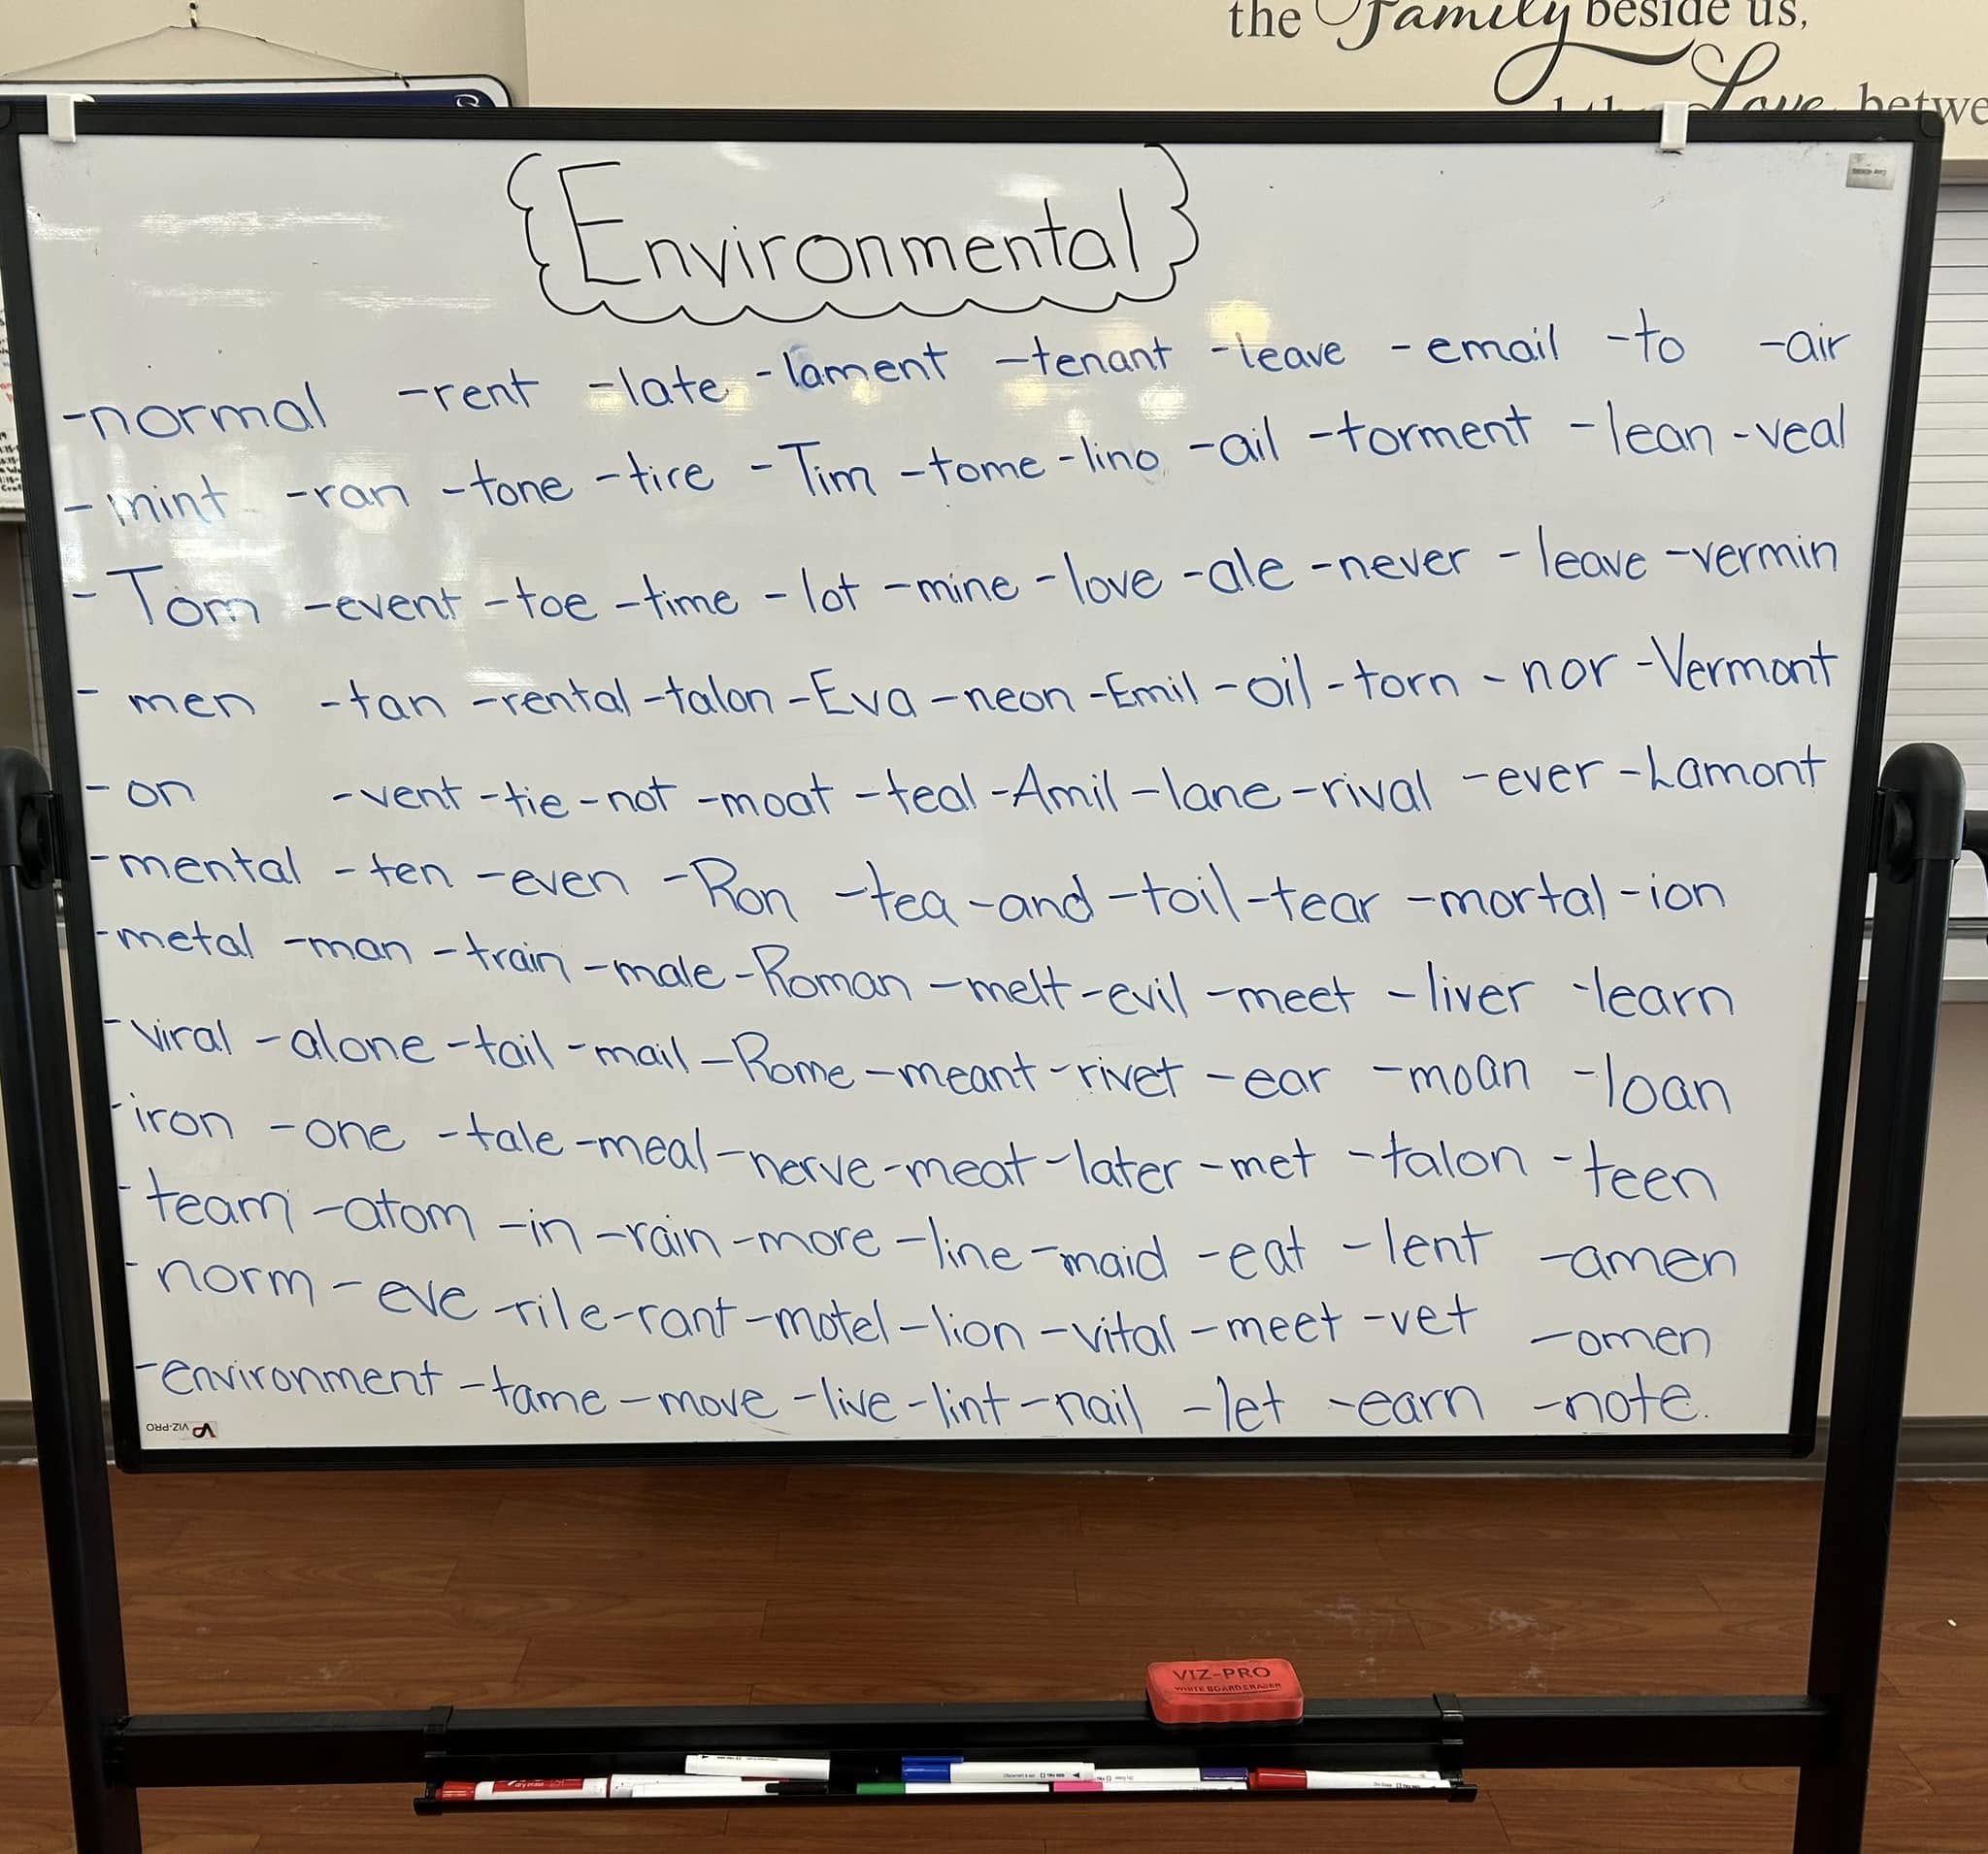 the Family beside us,
Love betwe
{Environmental}
-normal -rent -late -lament -tenant -leave -email -to -air
-mint -ran -tone -tire -Tim -tome -lino -ail -torment -lean -veal
-Tom -event -toe -time -lot -mine -love -ale -never -leave -vermin
-men -tan -rental -talon -Eva -neon -Emil -oil -torn -nor -Vermont
-on -vent -tie -not -moat -teal -Amil -lane -rival -ever -Lamont
-mental -ten -even -Ron -tea -and -toil -tear -mortal -ion
-metal -man -train -male -Roman -melt -evil -meet -liver -learn
-viral -alone -tail -mail -Rome -meant -rivet -ear -moan -loan
-iron -one -tale -meal -nerve -meat -later -met -talon -teen
-team -atom -in -rain -more -line -maid -eat -lent -amen
-norm -eve -rile -rant -motel -lion -vital -meet -vet -omen
-environment -tame -move -live -lint -nail -let -earn -note.
VIZ-PRO
VIZ-PRO
WHITE BOARD ERASER